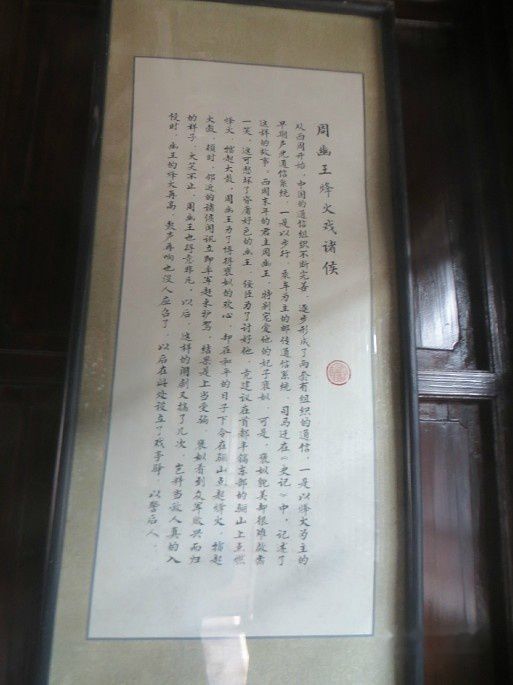 周幽王烽火戏诸侯
从西周开始，中国的通信组织不断完善，逐步形成了两套有组织的通信，一是以烽火为主的
早期声光通信系统，一是以步行、乘车为主的邮传通信系统。司马迁在《史记》中，记述了
这样的故事，西周末年的君主周幽王，特别宠爱他的妃子褒姒，可是，褒姒貌美却很难启齿
一笑，这可愁坏了昏庸好色的幽王，佞臣为了讨好他，竟建议在首都丰镐东部的骊山上点燃
烽火，擂起大鼓，周幽王为了博得褒姒的欢心，却在和平的日子下令在骊山点起烽火，擂起
大鼓，顿时，邻近的诸侯闻讯立即率军赶来护驾，结果是上当受骗，褒姒看到众军败兴而归
的样子，大笑不止，周幽王也得意非凡，以后，这样的闹剧又搞了几次，岂料当敌人真的入
侵时，幽王的烽火再高，鼓声再响也没人应召了，以后在此处设立了戏亭驿，以警后人。